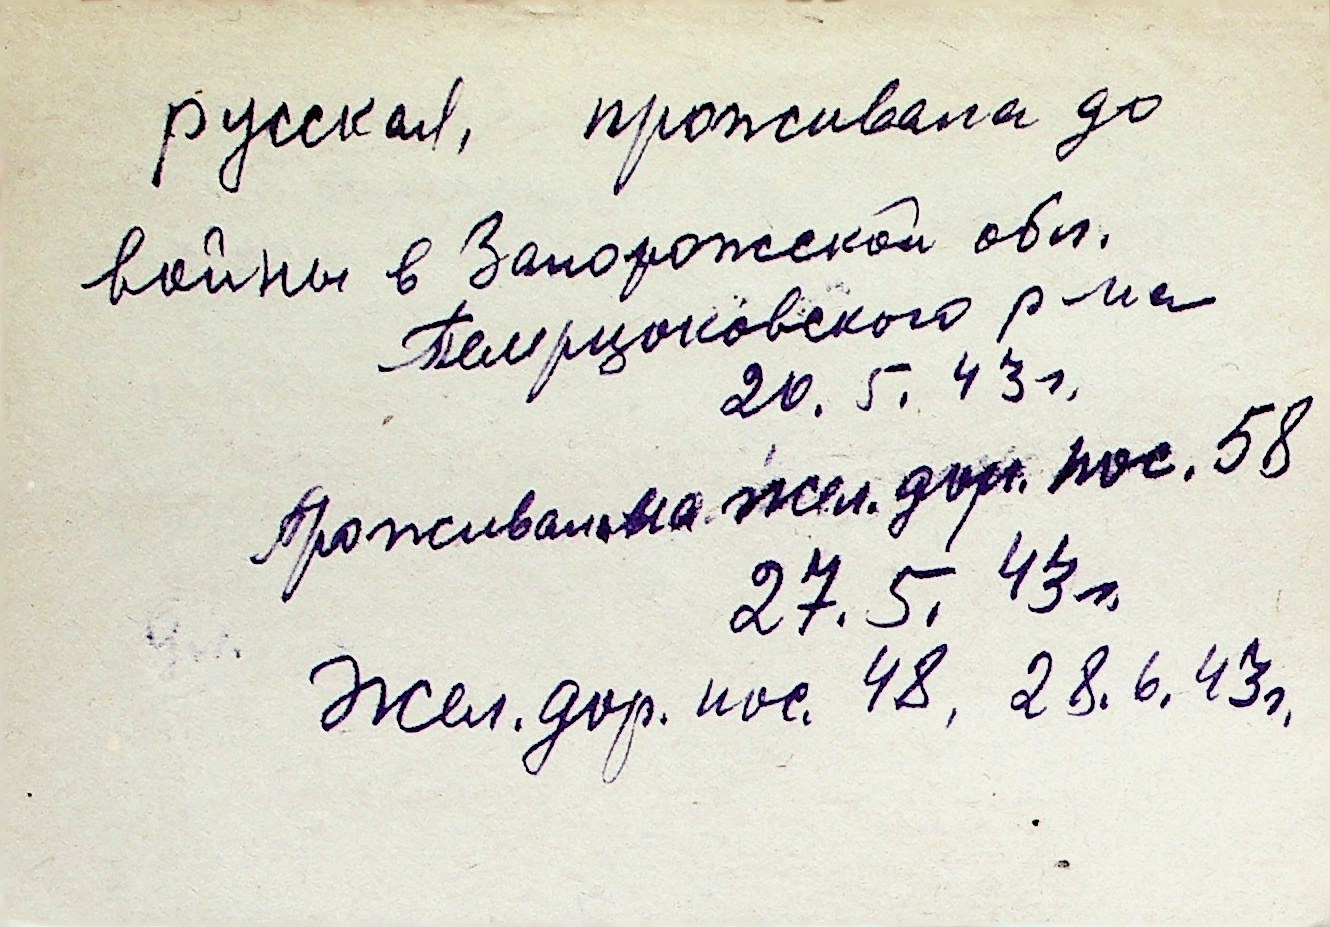 русская, проживала до
войны в Запорожской обл.
р-на
20. 5. 43 г.
Проживала на жел. дор. пос. 58
27. 5. 43 г.
Жел. дор. пос. 48, 28. 6. 43 г.